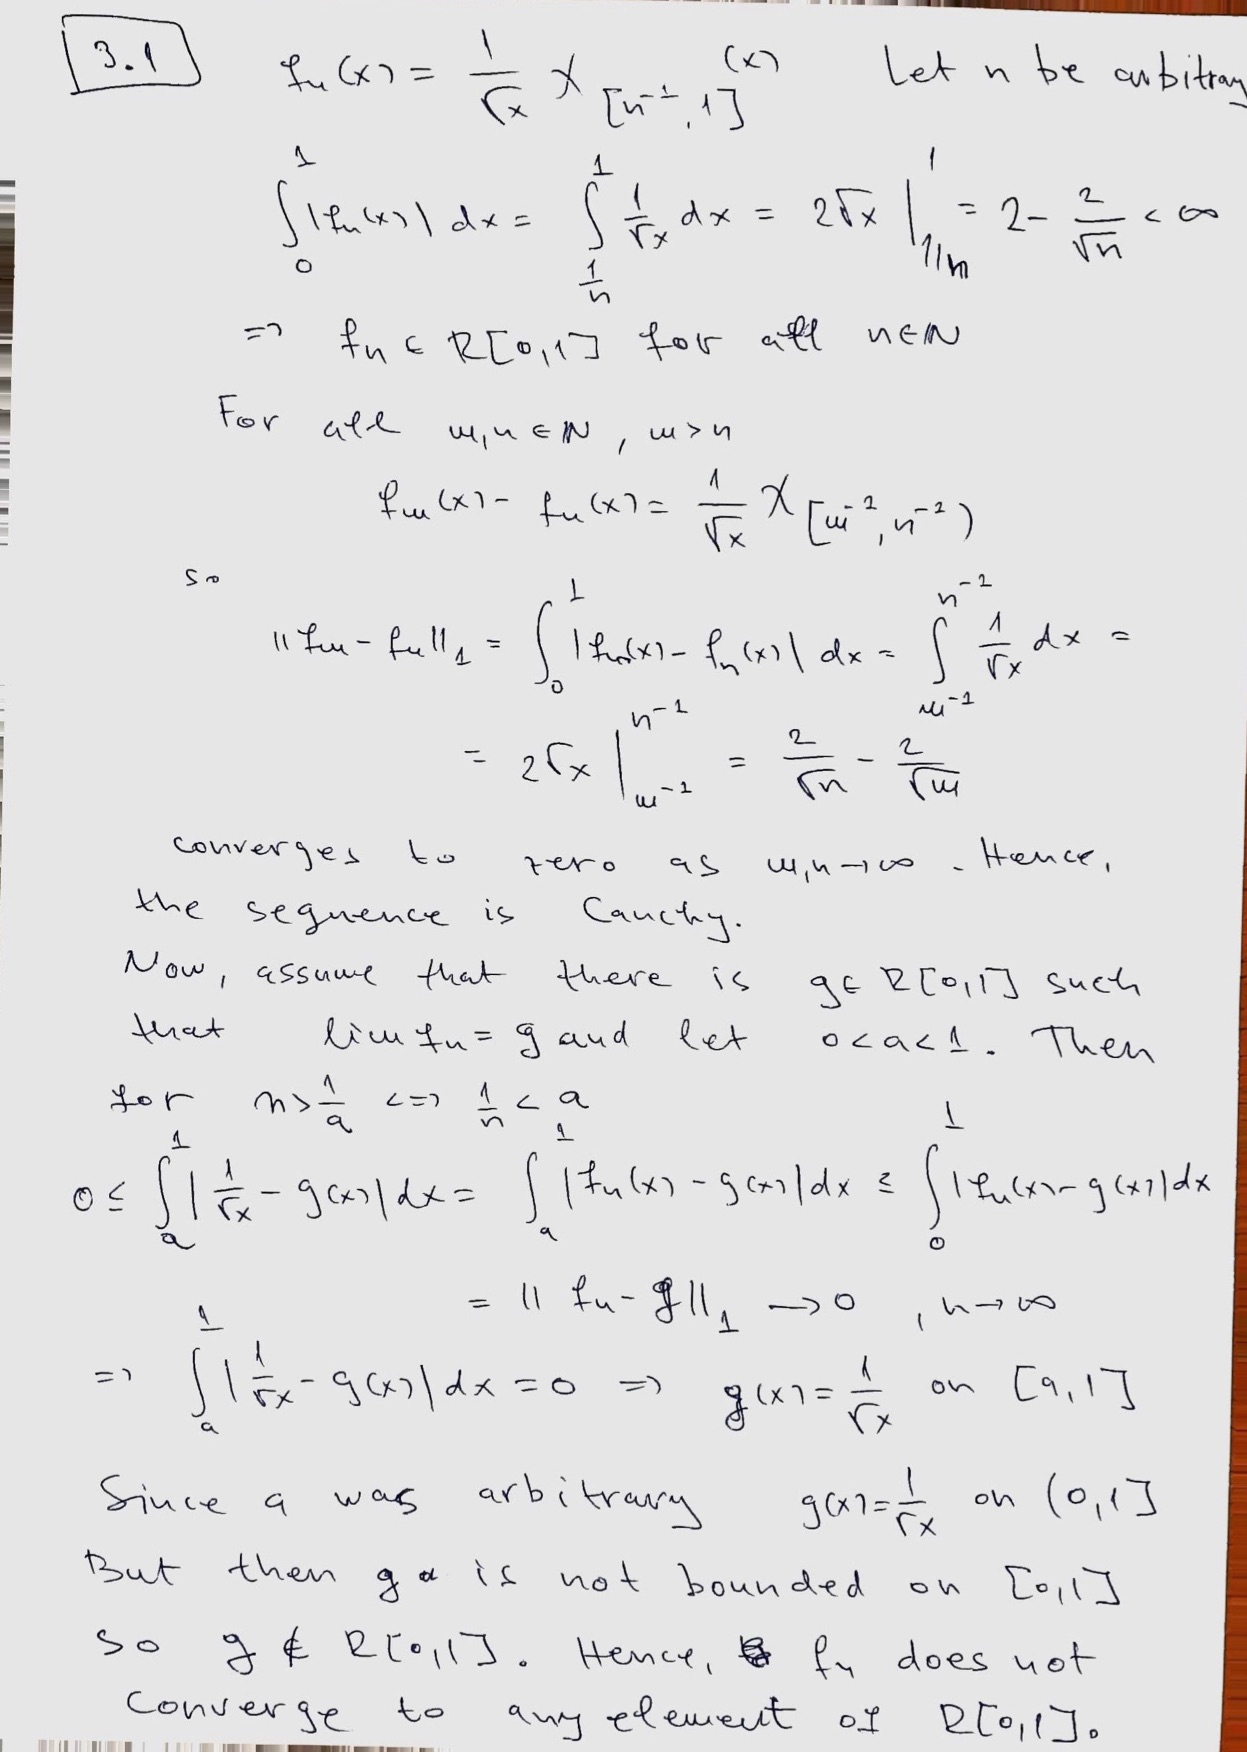 3.1 fn(x) = 1/√x χ[n⁻¹, 1](x) Let n be arbitrary
∫₀¹ |fn(x)| dx = ∫_{1/n}^1 1/√x dx = 2√x |_{1/n}^1 = 2 - 2/√n < ∞
=> fn ∈ R[0,1] for all n∈N
For all m,n ∈ N, m>n
fm(x) - fn(x) = 1/√x χ[m⁻¹, n⁻¹)
so
||fm - fn||₁ = ∫₀¹ |fm(x) - fn(x)| dx = ∫_{m⁻¹}^{n⁻¹} 1/√x dx =
= 2√x |_{m⁻¹}^{n⁻¹} = 2/√n - 2/√m
converges to zero as m,n→∞. Hence,
the sequence is Cauchy.
Now, assume that there is g∈ R[0,1] such
that lim fn = g and let 0<a<1. Then
for n>1/a <=> 1/n < a
0 ≤ ∫_a^1 |1/√x - g(x)| dx = ∫_a^1 |fn(x) - g(x)| dx ≤ ∫₀¹ |fn(x) - g(x)| dx
= || fn - g||₁ → 0 , n→∞
=> ∫_a^1 |1/√x - g(x)| dx = 0 => g(x) = 1/√x on [a,1]
Since a was arbitrary g(x) = 1/√x on (0,1]
But then g is not bounded on [0,1]
so g ∉ R[0,1]. Hence, fn does not
converge to any element of R[0,1].